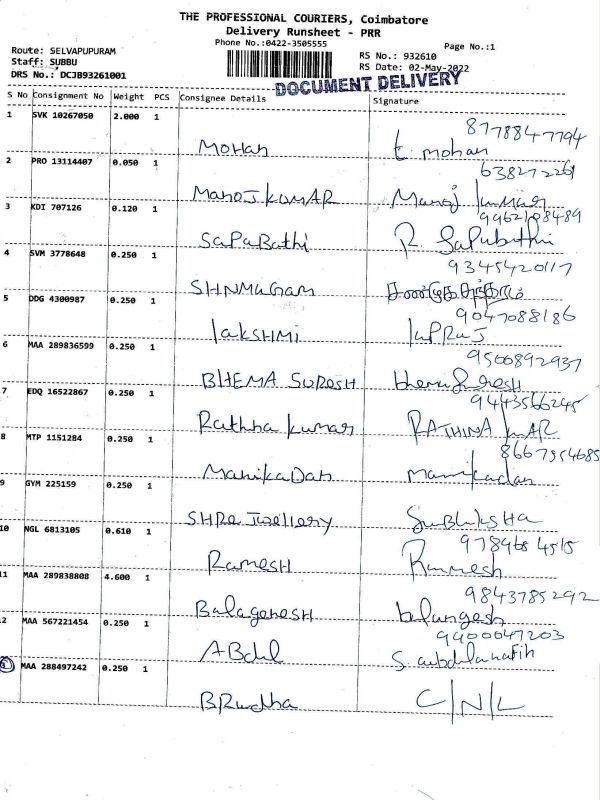 THE PROFESSIONAL COURIERS, Coimbatore
Delivery Runsheet - PRR
Phone No.:0422-3505555
Page No.:1
Route: SELVAPUPURAM
RS No.: 932610
Staff: SUBBU
RS Date: 02-May-2022
DRS No.: DCJB93261001
DOCUMENT DELIVERY
S No Consignment No Weight PCS Consignee Details Signature
1 SVK 10267050 2.000 1
8778847794
MOHAN t mohan
2 PRO 13114407 0.050 1
638272261
MANOJ KUMAR Manoj kumar
3 KDI 707126 0.120 1
9962108489
SaPaBathi R. SaPabathi
4 SVM 3778648 0.250 1
9345420117
SHNMUGam
5 DDG 4300987 0.250 1
9047088186
lakSHMI
6 MAA 289836599 0.250 1
9500892937
BHEMA SURESH
7 EDQ 16522867 0.250 1
9443566245
Rathna kumar RATHINA
8 MTP 1151284 0.250 1
8667954685
ManikaDan manikadan
9 GYM 225159 0.250 1
SHRe Jwellery Subhiksha
10 NGL 6813105 0.610 1
9789684515
RameSH
11 MAA 289838808 4.600 1
9843785292
Balaganesh
2 MAA 567221454 0.250 1
9400047203
ABdul
3 MAA 288497242 0.250 1
BRudha C/N/L